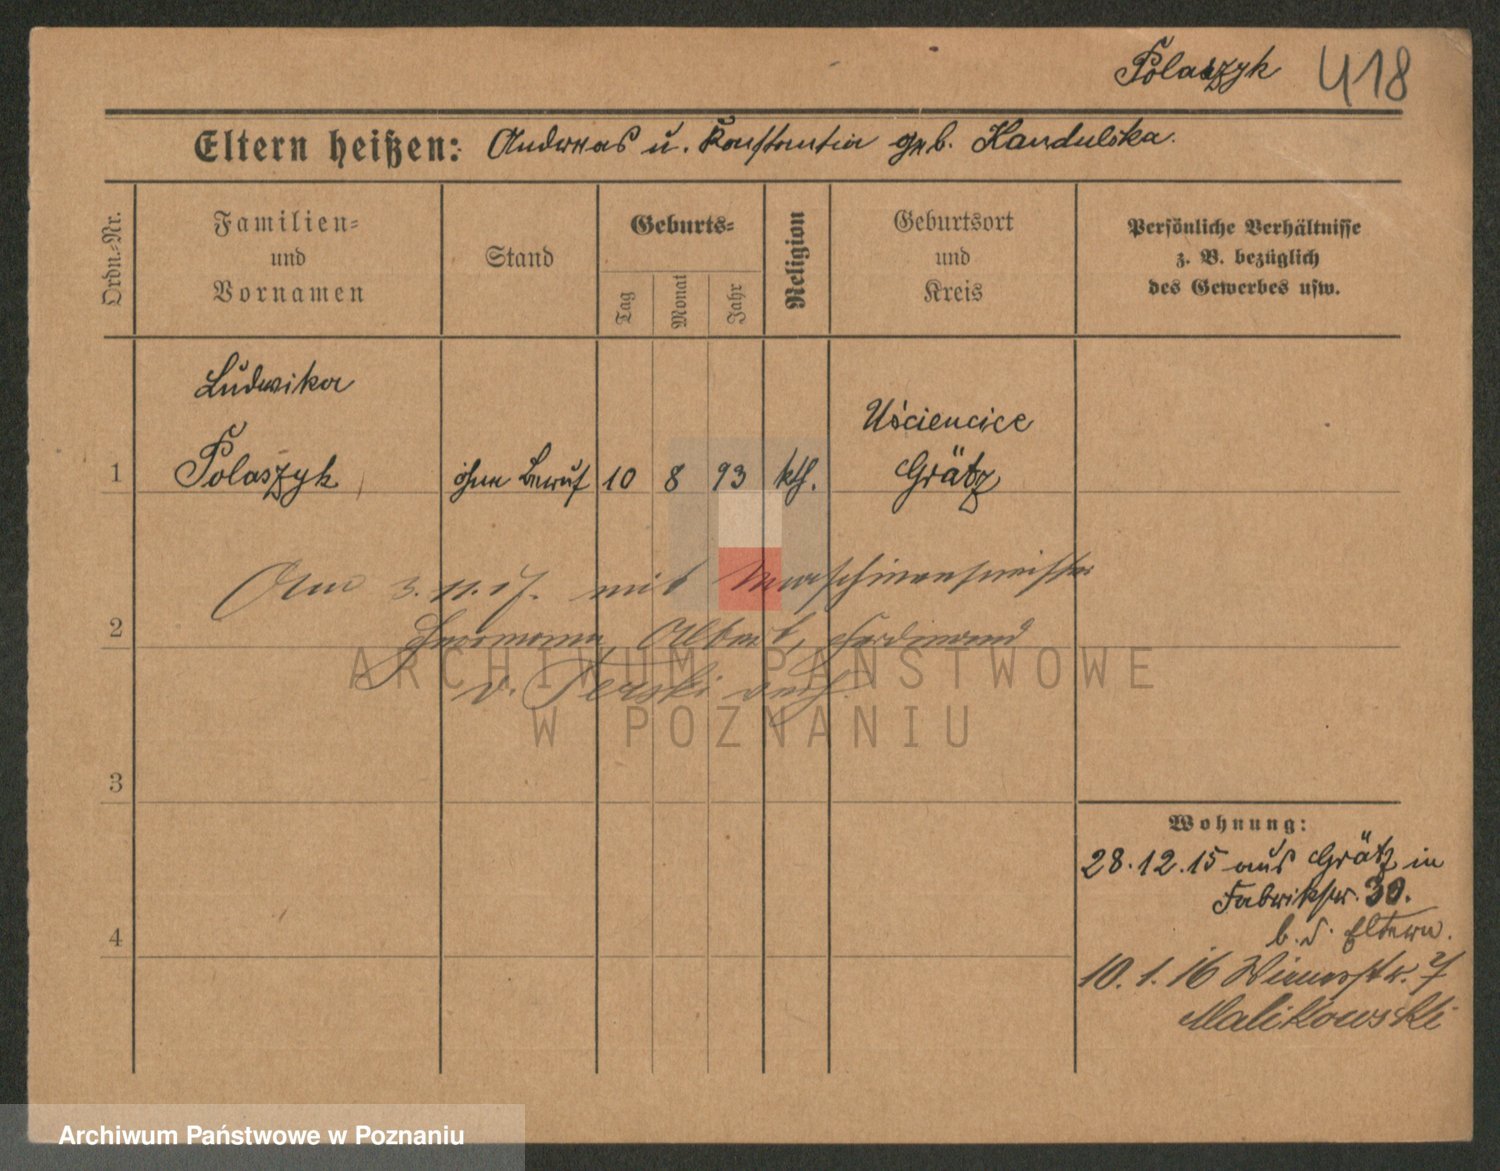 Polaszyk 418
Eltern heißen: Andreas u. Konstantia geb. Kandulska.
Ordn.-Nr.
Familien-
und
Vornamen
Stand
Geburts-
Tag
Monat
Jahr
Religion
Geburtsort
und
Kreis
Persönliche Verhältnisse
z. B. bezüglich
des Gewerbes usw.
Ludwika
Uściencice
1 Polaszyk ohne Beruf 10 8 93 kth. Grätz
Am 3.11.17. mit Maschinenmeister
2
Hermann, Albert, Ferdinand
v. Perski verh.
ARCHIWUM PAŃSTWOWE
W POZNANIU
3
4
Wohnung:
28.12.15 aus Grätz in
Fabrikstr. 30.
b. d. Eltern.
10.1.16 7
Malikowski
Archiwum Państwowe w Poznaniu